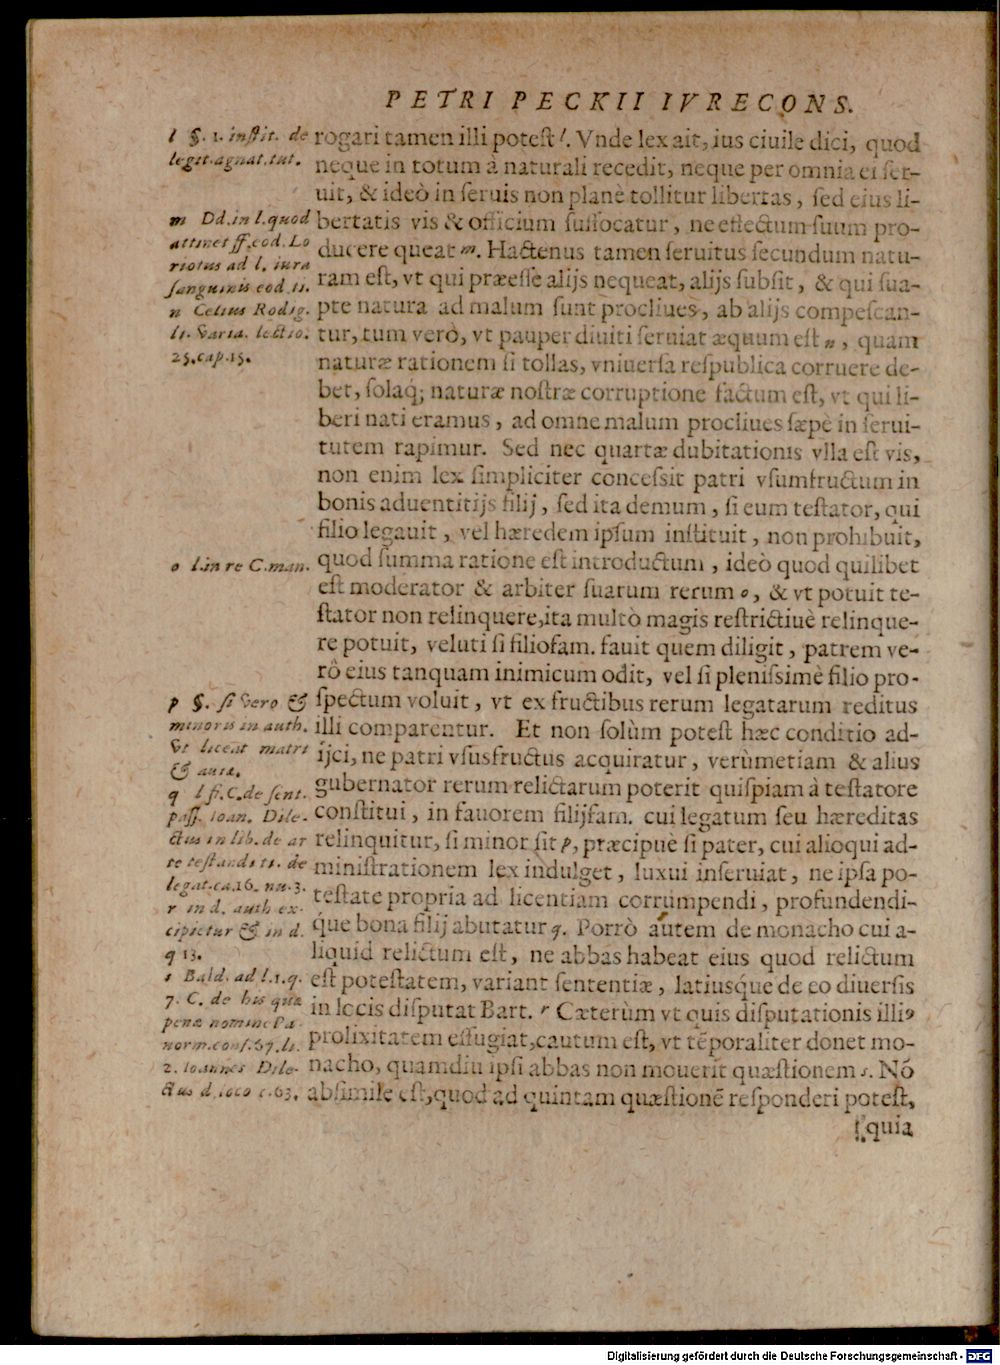 PETRI PECKII IVRECONS.
l §. 1. instit. de
legit. agnat. tut.
m Dd. in l. quod
attinet ff. eod. Lo
riotus ad l. iura
sanguinis eod. ti.
n Celius Rodig.
li. varia. lectio.
25. cap. 15.
o l. in re C. man.
p §. si vero &
minoris in auth.
vt liceat matri
& auiæ.
q l. fi. C. de sent.
pass. Ioan. Dile-
ctus in lib. de ar
te testandi ti. de
legat. ca. 16. nu. 3.
r in d. auth ex-
cipietur & in d.
q 13.
s Bald. ad l. 1. q.
7. C. de his quæ
penæ nomine Pa
norm. cons. 67. li.
2. Ioannes Dile-
ctus d. loco c. 63.
rogari tamen illi potest l. Vnde lex ait, ius ciuile dici, quod
neque in totum à naturali recedit, neque per omnia ei ser-
uit, & ideò in seruis non planè tollitur libertas, sed eius li-
bertatis vis & officium suffocatur, ne effectum suum pro-
ducere queat m. Hactenus tamen seruitus secundum natu-
ram est, vt qui præesse alijs nequeat, alijs subsit, & qui sua-
pte natura ad malum sunt procliues, ab alijs compescan-
tur, tum verò, vt pauper diuiti seruiat æquum est n, quam
naturæ rationem si tollas, vniuersa respublica corruere de-
bet, solaq; naturæ nostræ corruptione factum est, vt qui li-
beri nati eramus, ad omne malum procliues sæpè in serui-
tutem rapimur. Sed nec quartæ dubitationis vlla est vis,
non enim lex simpliciter concessit patri vsumfructum in
bonis aduentitijs filij, sed ita demum, si eum testator, qui
filio legauit, vel hæredem ipsum instituit, non prohibuit,
quod summa ratione est introductum, ideò quod quilibet
est moderator & arbiter suarum rerum o, & vt potuit te-
stator non relinquere, ita multò magis restrictiuè relinque-
re potuit, veluti si filiofam. fauit quem diligit, patrem ve-
rò eius tanquam inimicum odit, vel si plenissimè filio pro-
spectum voluit, vt ex fructibus rerum legatarum reditus
illi comparentur. Et non solùm potest hæc conditio ad-
ijci, ne patri vsusfructus acquiratur, verùmetiam & alius
gubernator rerum relictarum poterit quispiam à testatore
constitui, in fauorem filijfam. cui legatum seu hæreditas
relinquitur, si minor sit p, præcipuè si pater, cui alioqui ad-
ministrationem lex indulget, luxui inseruiat, ne ipsa po-
testate propria ad licentiam corrumpendi, profundendi-
que bona filij abutatur q. Porrò autem de monacho cui a-
liquid relictum est, ne abbas habeat eius quod relictum
est potestatem, variant sententiæ, latiusque de eo diuersis
in locis disputat Bart. r Cæterùm vt quis disputationis illiꝰ
prolixitatem effugiat, cautum est, vt tẽporaliter donet mo-
nacho, quamdiu ipsi abbas non mouerit quæstionem s. Nõ
absimile est, quod ad quintam quæstionẽ responderi potest,
t quia
Digitalisierung gefördert durch die Deutsche Forschungsgemeinschaft - DFG